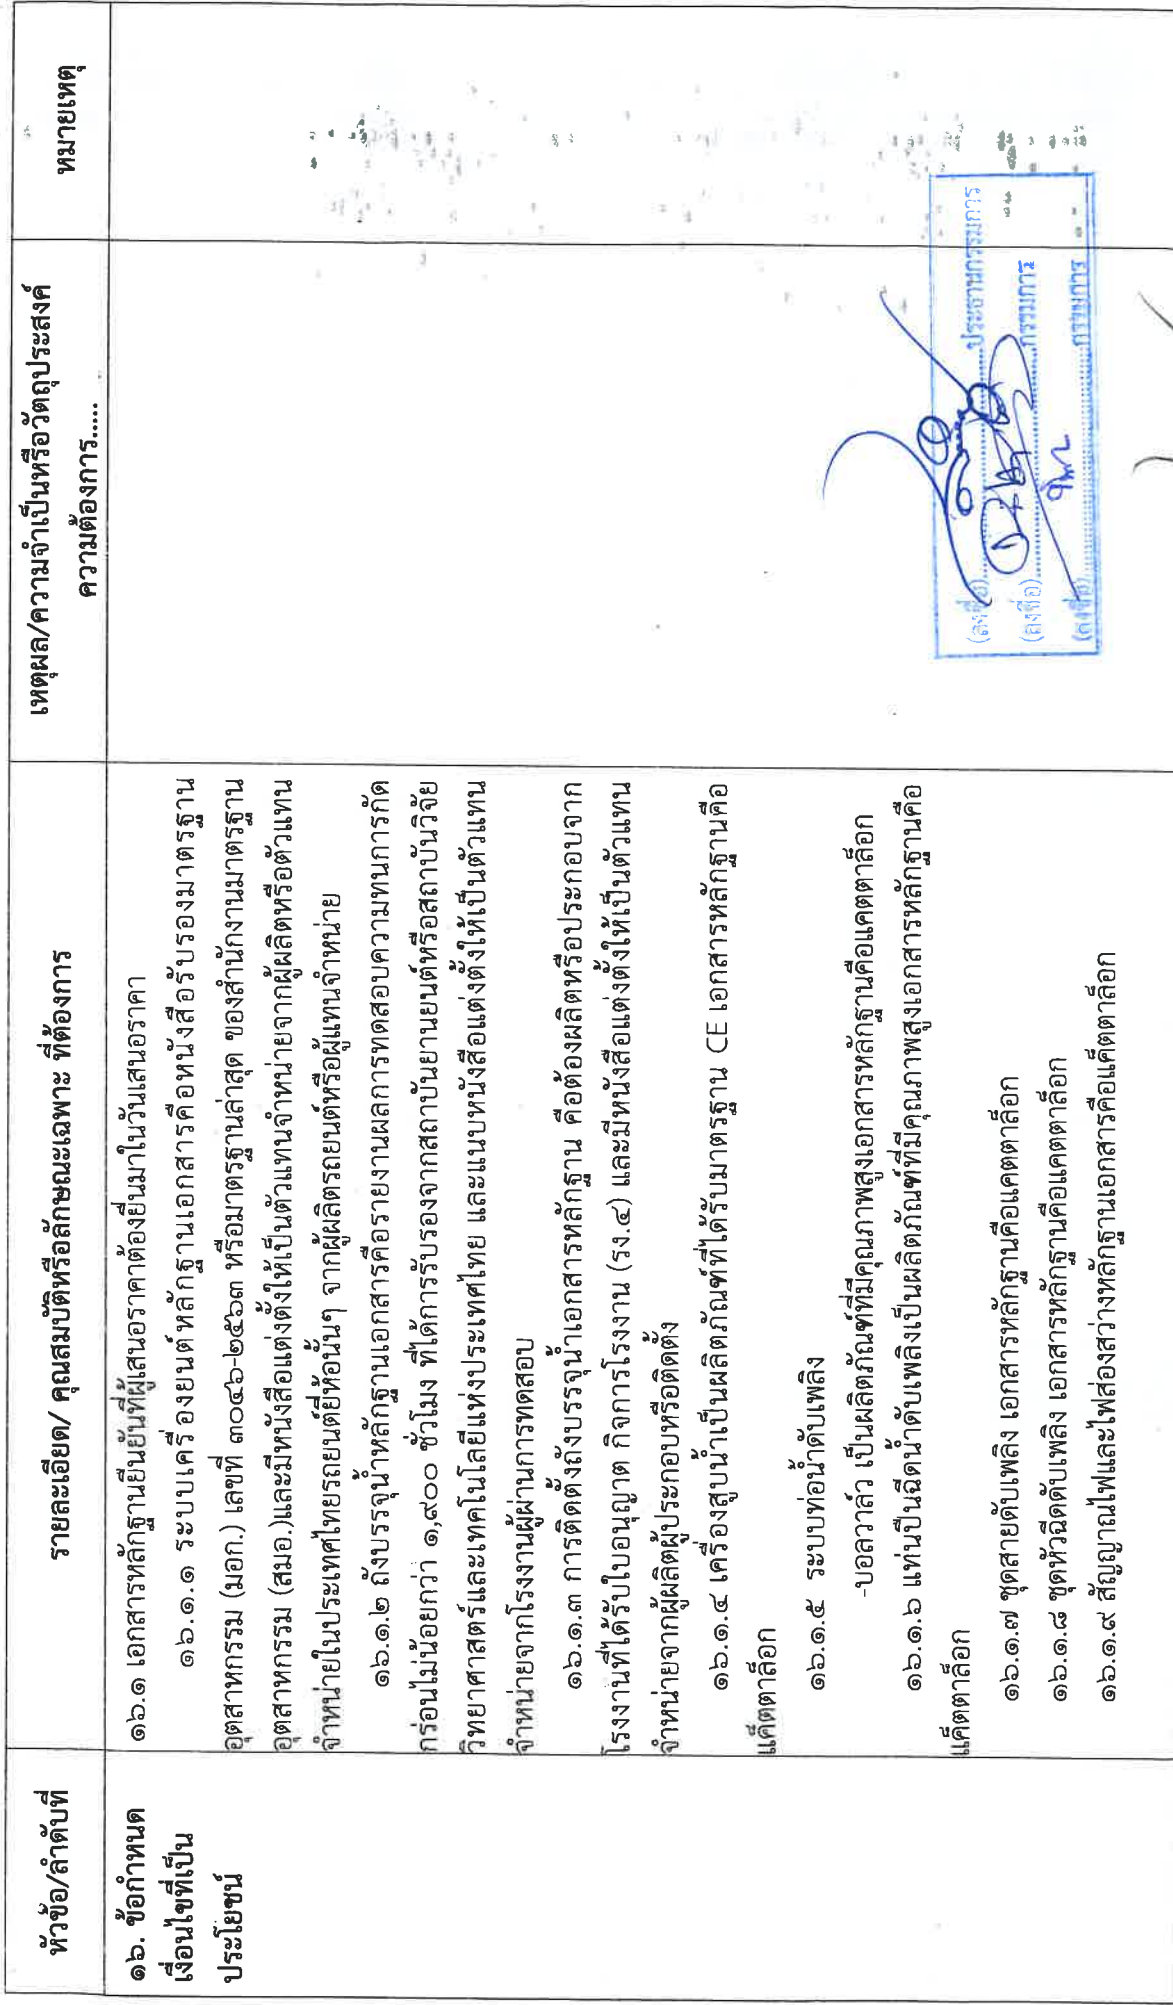 หัวข้อ/ลำดับที่
รายละเอียด/ คุณสมบัติหรือลักษณะเฉพาะ ที่ต้องการ
เหตุผล/ความจำเป็นหรือวัตถุประสงค์
ความต้องการ.....
หมายเหตุ
๑๖. ข้อกำหนด
เงื่อนไขที่เป็น
ประโยชน์
๑๖.๑ เอกสารหลักฐานยืนยันที่ผู้เสนอราคาต้องยื่นมาในวันเสนอราคา
๑๖.๑.๑ ระบบเครื่องยนต์หลักฐานเอกสารคือหนังสือรับรองมาตรฐาน
อุตสาหกรรม (มอก.) เลขที่ ๓๐๔๖-๒๕๖๓ หรือมาตรฐานล่าสุด ของสำนักงานมาตรฐาน
อุตสาหกรรม (สมอ.)และมีหนังสือแต่งตั้งให้เป็นตัวแทนจำหน่ายจากผู้ผลิตหรือตัวแทน
จำหน่ายในประเทศไทยรถยนต์ยี่ห้อนั้นๆ จากผู้ผลิตรถยนต์หรือผู้แทนจำหน่าย
๑๖.๑.๒ ถังบรรจุน้ำหลักฐานเอกสารคือรายงานผลการทดสอบความทนการกัด
กร่อนไม่น้อยกว่า ๑,๙๐๐ ชั่วโมง ที่ได้การรับรองจากสถาบันยานยนต์หรือสถาบันวิจัย
วิทยาศาสตร์และเทคโนโลยีแห่งประเทศไทย และแนบหนังสือแต่งตั้งให้เป็นตัวแทน
จำหน่ายจากโรงงานผู้ผ่านการทดสอบ
๑๖.๑.๓ การติดตั้งถังบรรจุน้ำเอกสารหลักฐาน คือต้องผลิตหรือประกอบจาก
โรงงานที่ได้รับใบอนุญาต กิจการโรงงาน (รง.๔) และมีหนังสือแต่งตั้งให้เป็นตัวแทน
จำหน่ายจากผู้ผลิตผู้ประกอบหรือติดตั้ง
๑๖.๑.๔ เครื่องสูบน้ำเป็นผลิตภัณฑ์ที่ได้รับมาตรฐาน CE เอกสารหลักฐานคือ
แค็ตตาล็อก
๑๖.๑.๕ ระบบท่อน้ำดับเพลิง
-บอลวาล์ว เป็นผลิตภัณฑ์ที่มีคุณภาพสูงเอกสารหลักฐานคือแคตตาล็อก
๑๖.๑.๖ แท่นปืนฉีดน้ำดับเพลิงเป็นผลิตภัณฑ์ที่มีคุณภาพสูงเอกสารหลักฐานคือ
แค็ตตาล็อก
๑๖.๑.๗ ชุดสายดับเพลิง เอกสารหลักฐานคือแคตตาล็อก
๑๖.๑.๘ ชุดหัวฉีดดับเพลิง เอกสารหลักฐานคือแคตตาล็อก
๑๖.๑.๙ สัญญาณไฟและไฟส่องสว่างหลักฐานเอกสารคือแค็ตตาล็อก
(ลงชื่อ)..............................ประธานกรรมการ
(ลงชื่อ)..............................กรรมการ
(ลงชื่อ)..............................กรรมการ